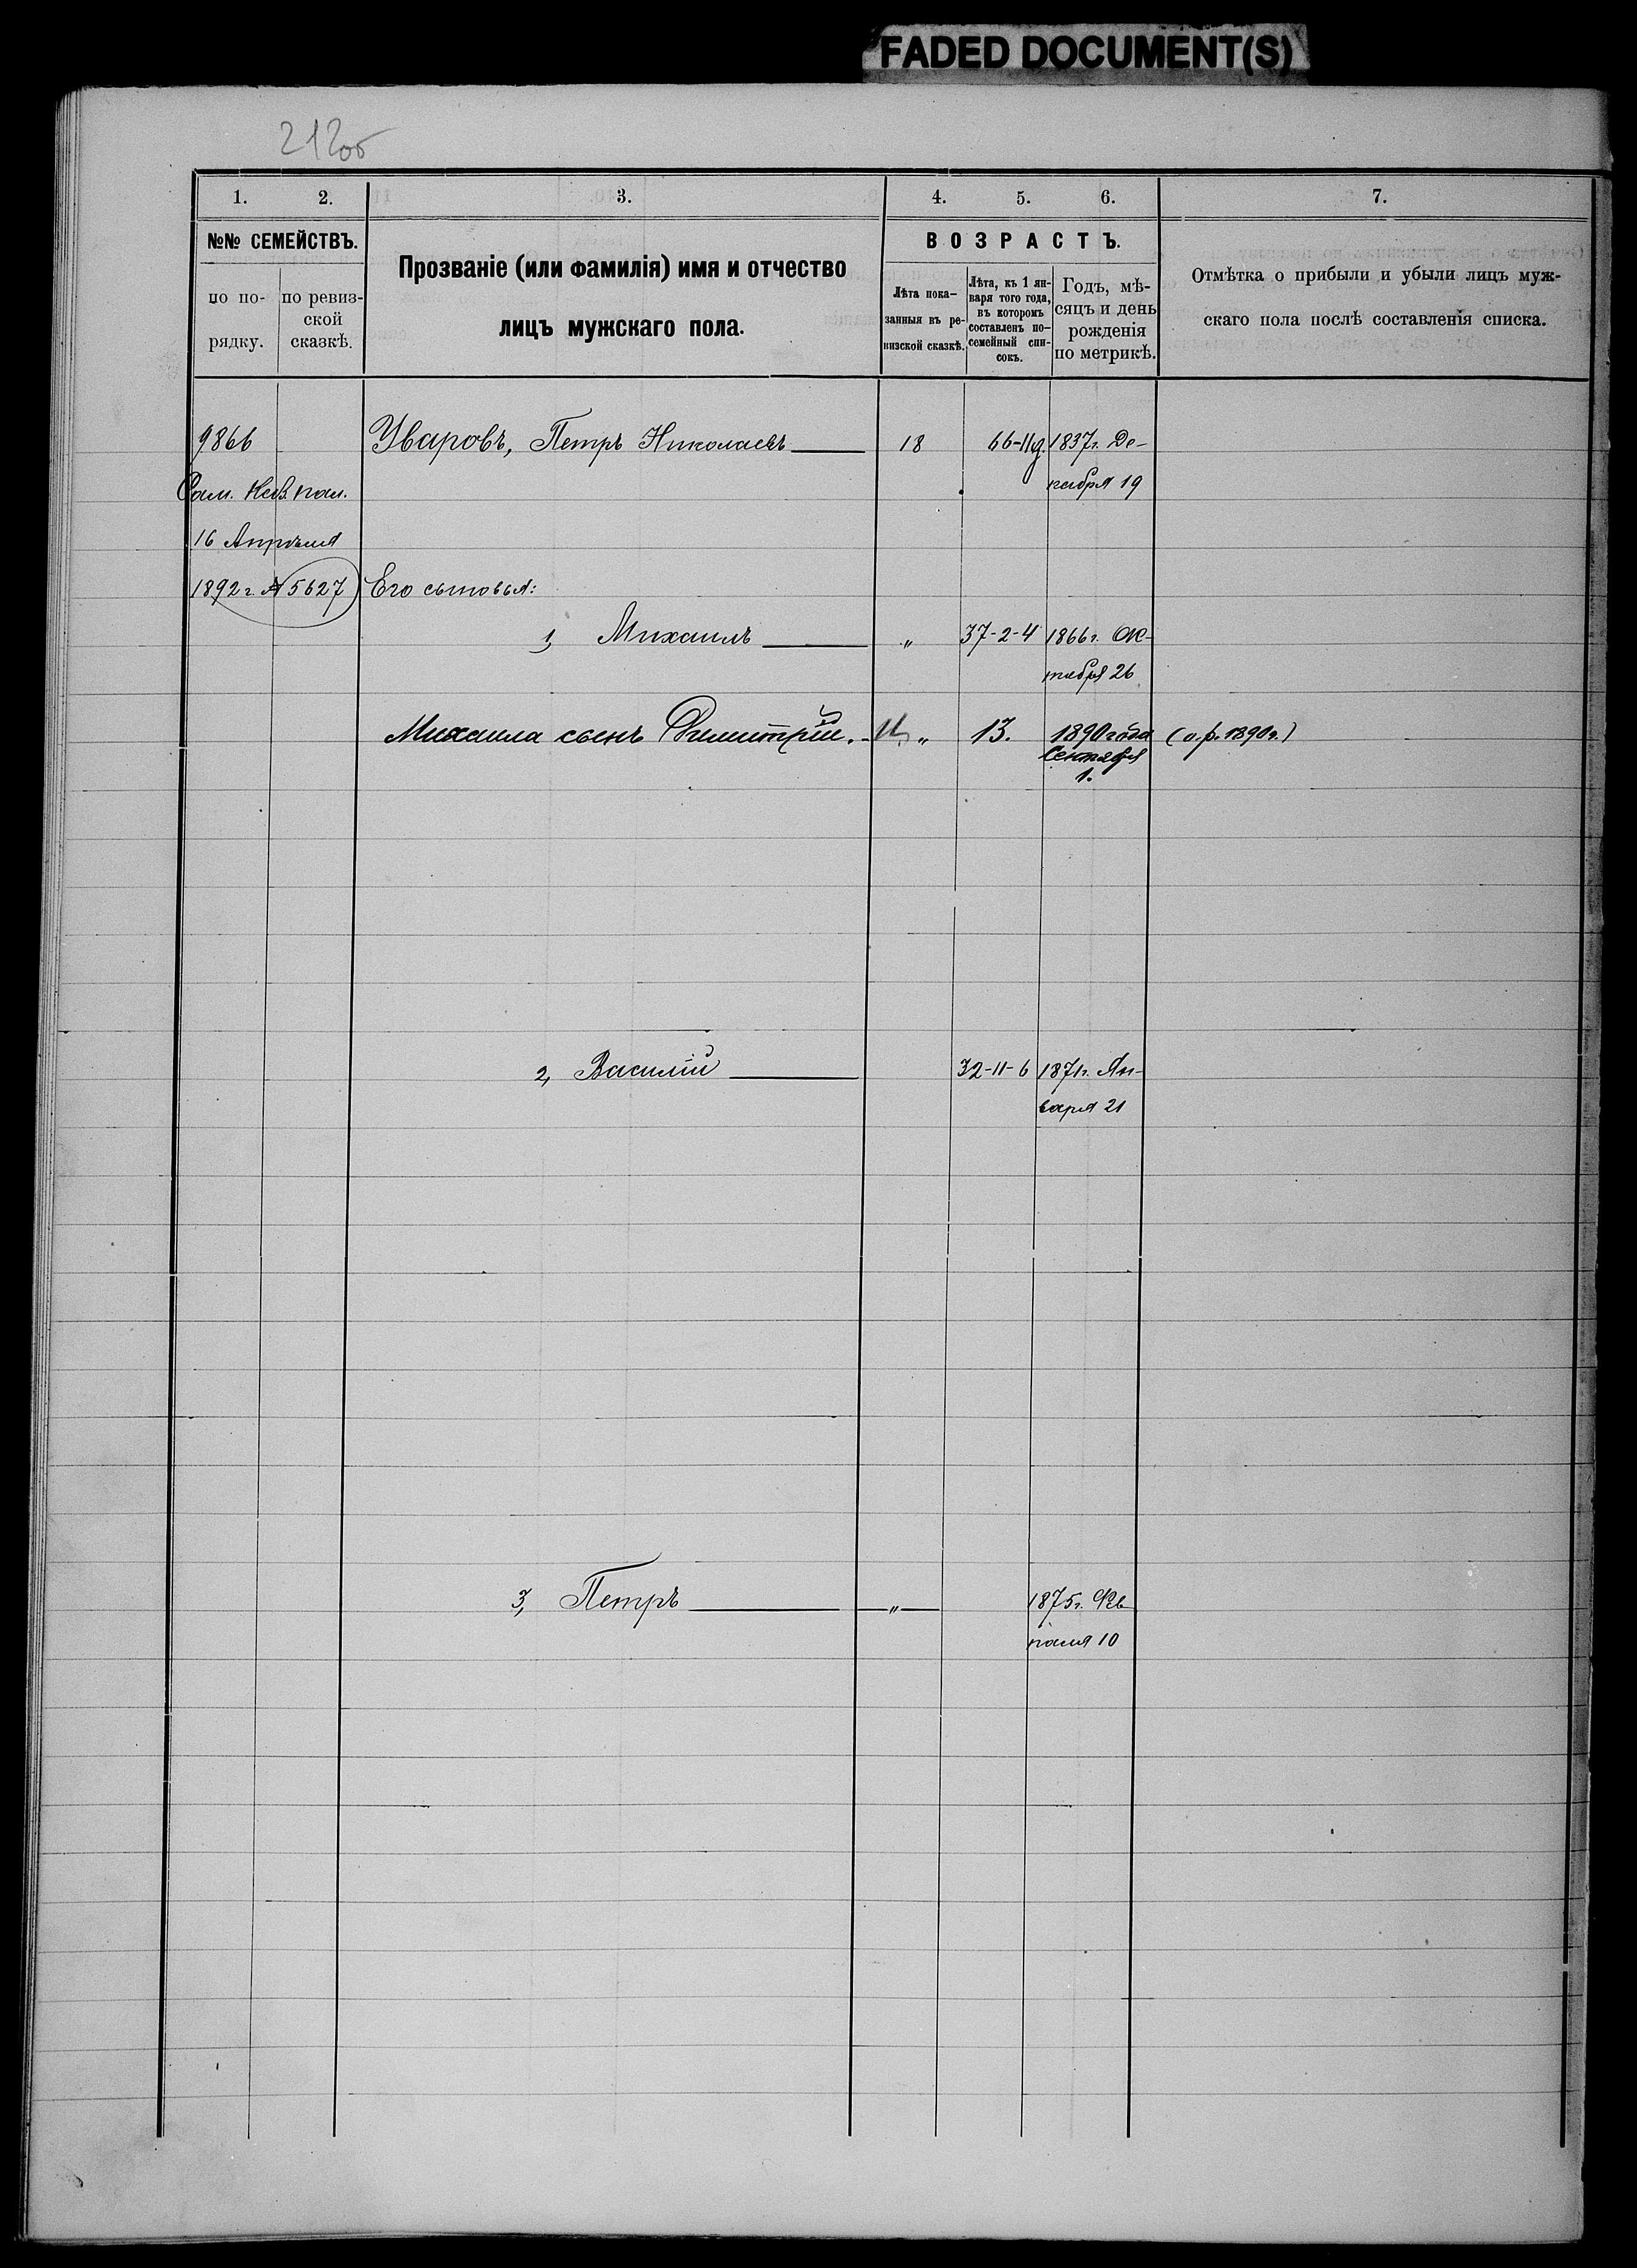 FADED DOCUMENT(S)
212об
1. 2. 3. 4. 5. 6. 7.
№№ СЕМЕЙСТВЪ.
по по-
рядку.
по ревиз-
ской
сказкѣ.
Прозваніе (или фамилія) имя и отчество
лицъ мужскаго пола.
ВОЗРАСТЪ.
Лѣта пока-
занныя въ ре-
визской сказкѣ.
Лѣта, къ 1 ян-
варя того года,
въ которомъ
составленъ по-
семейный спи-
сокъ.
Годъ, мѣ-
сяцъ и день
рожденія
по метрикѣ.
Отмѣтка о прибыли и убыли лицъ муж-
скаго пола послѣ составленія списка.
9866 Уваровъ, Петръ Николаевъ 18 66-11д. 1837г. Де-
кабря 19
Сам. Каз. пал.
16 Апрѣля
1892 г. № 5627 Его сыновья:
1, Михаилъ „ 37-2-4 1866г. Ок-
тября 26
Михаила сынъ Димитрій. „ 13. 1890 года (о.р. 1890г.)
Сентября
1.
2, Василій 32-11-6 1871г. Ян-
варя 21
3, Петръ „ 1875г. Фев
раля 10